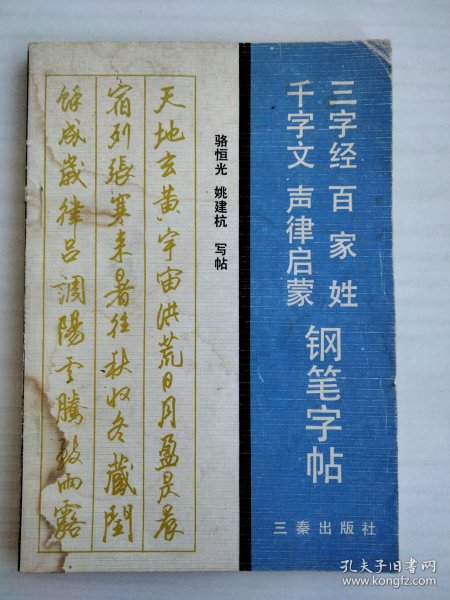 三字经 百家姓
千字文 声律启蒙
钢笔字帖
三秦出版社
骆恒光 姚建杭 写帖
天地玄黄宇宙洪荒日月盈昃辰
宿列張寒来暑往秋收冬藏閏
餘成歲律吕調陽云騰致雨露
孔夫子旧书网
www.kongfz.com